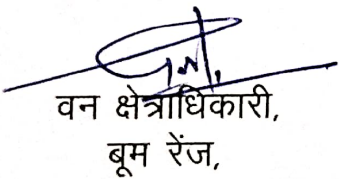 वन क्षेत्राधिकारी,
बूम रेंज,